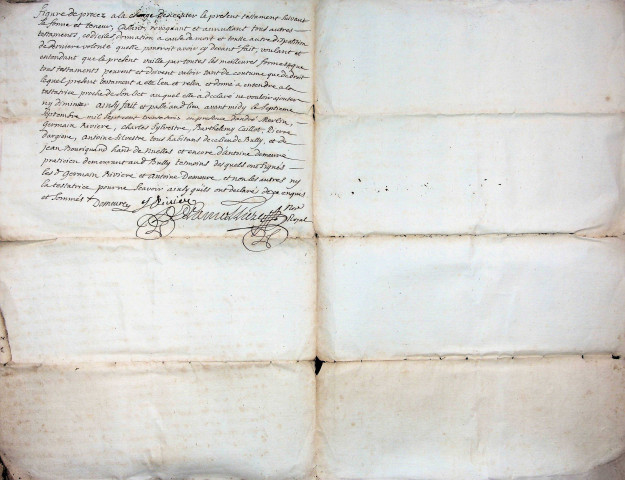 figure de procez a la charge d'executer le present testament suivant
sa forme et teneur, Cassant revoquant et annullant tous autres
testaments, codicilles donnation a cause de mort et toutte autre disposition
de derniere volonté quelle pourroit avoir cy devant fait, voulant et
entendant que le present vaille par toutes les meilleures formes que
tous testaments peuvent et doivent valoir tant de coutume que de droit
lequel present testament a eté leu et releu et donné a entendre a la
testatrice proche de son lict auquel elle a declaré ne vouloir ajouter
ny diminuer ainsy fait et passé audit lieu avant midy le septieme
septembre mil sept cent en presence d'andré Merlin
Germain Riviere, charles Sylvestre, Barthelemy Caillot, Pierre
dargere, Antoine Silvestre tous habitans de ce lieu de Bully, et de
Jean Bouriquand habt de Nuelles et encore d'antoine demoure
praticien demeurant aud Bully temoins desquels ont signés
les s^r Germain Riviere et Antoine Demoure et non les autres ny
la testatrice pour ne scavoir ainsy quils ont declaré de ce enquis
et sommés
Demoure Riviere
Royal